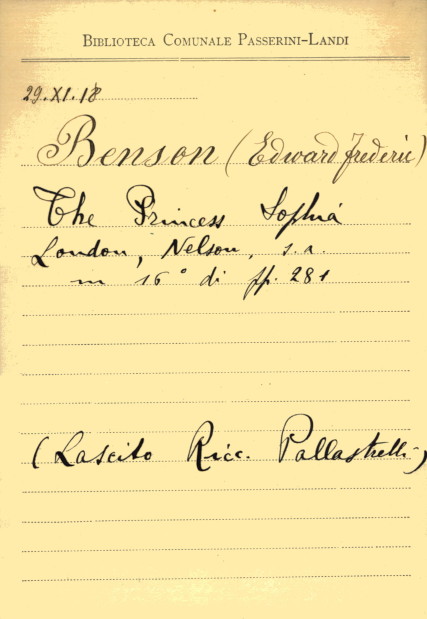 BIBLIOTECA COMUNALE PASSERINI-LANDI
29.XI.18
Benson (Edward Frederic)
The Princess Sophia
London, Nelson, s.a.
in 16° di pp. 281
(Lascito Ricc. Pallastrelli)